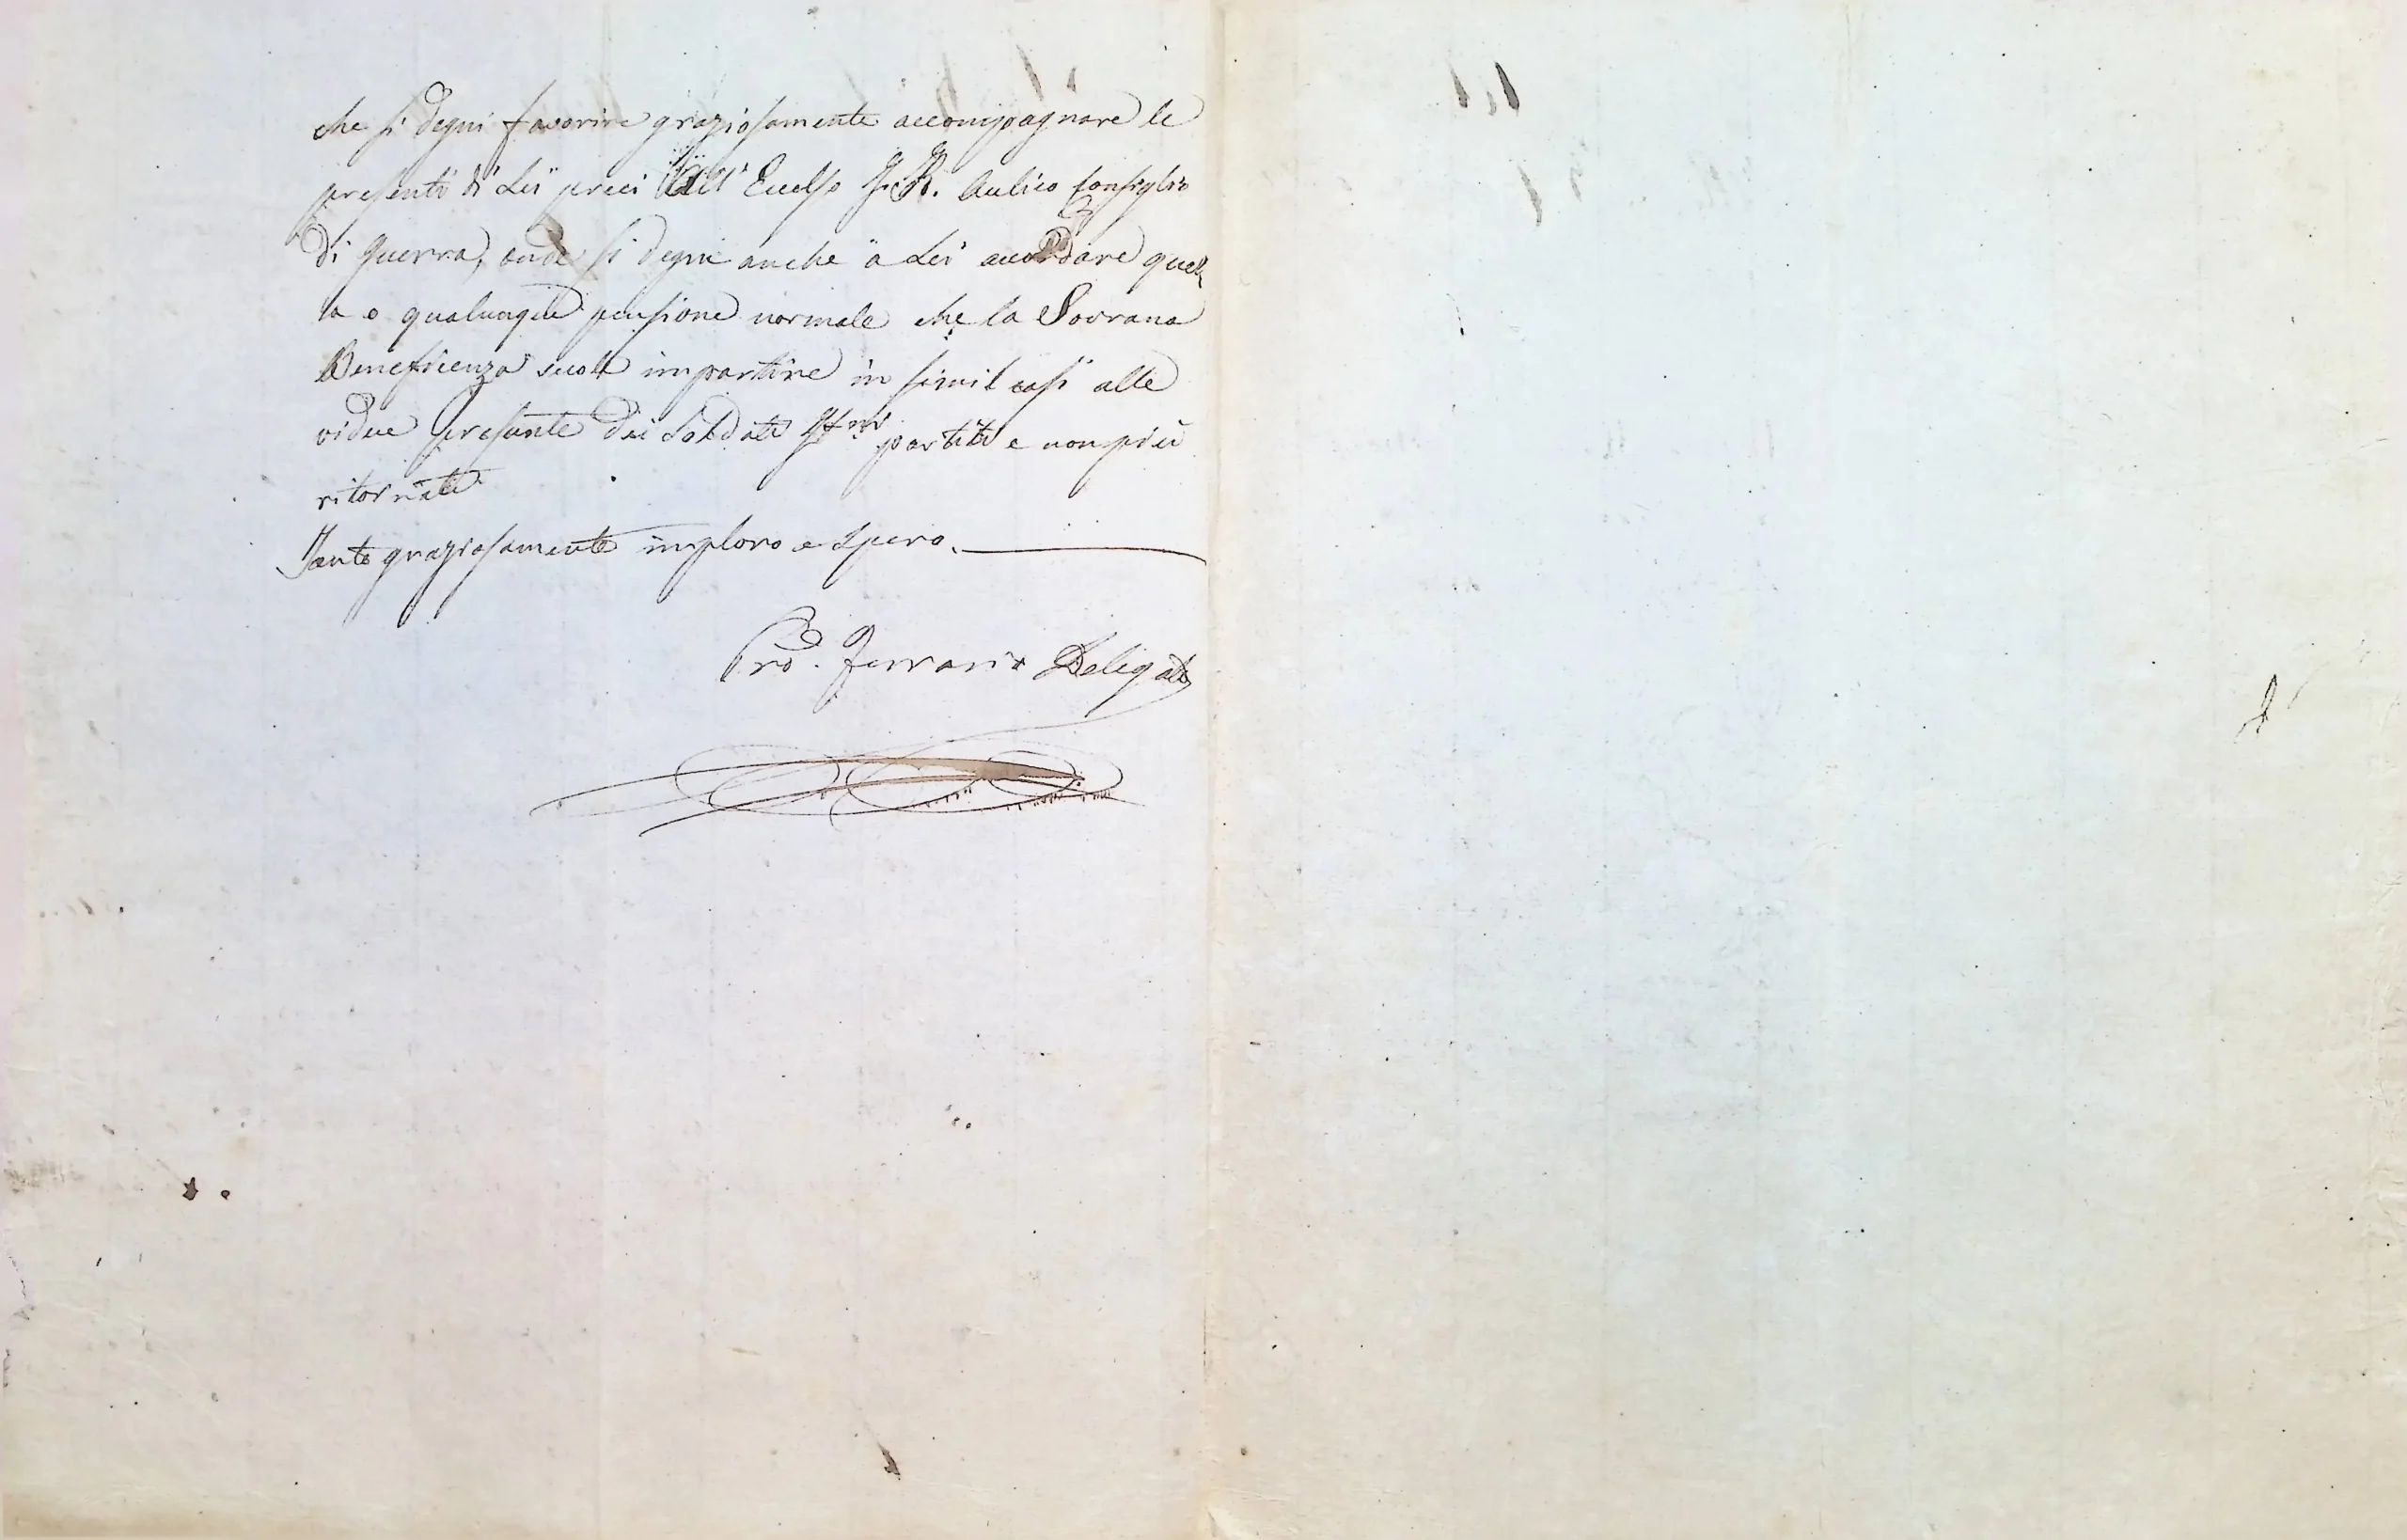 che si degni favorire graziosamente accompagnare le
presenti di Lei preci all' Eccelso I. R. Aulico Consiglio
di guerra, onde si degni anche à Lei accordare quel,
la o qualunque pensione normale che la Sovrana
Beneficienza suole impartire in simil casi alle
vidue presunte dei Soldati partiti e non più
ritornati
Tanto graziosamente imploro e spero.
Ferrari Delegato